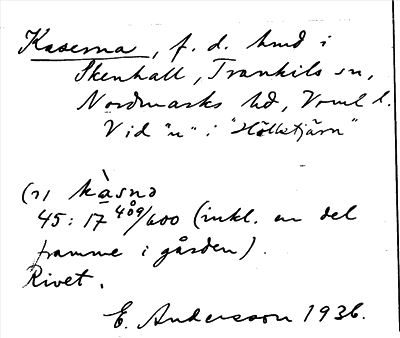 Kaserna, f. d. hmd i
Skenhall, Trankils sn,
Nordmarks hd, Vrml l.
Vid "n" i "Hölketjärn"
(r) kàsnə
45: 17 409/600 (inkl. en del
framme i gården).
Rivet.
E. Andersson 1936.